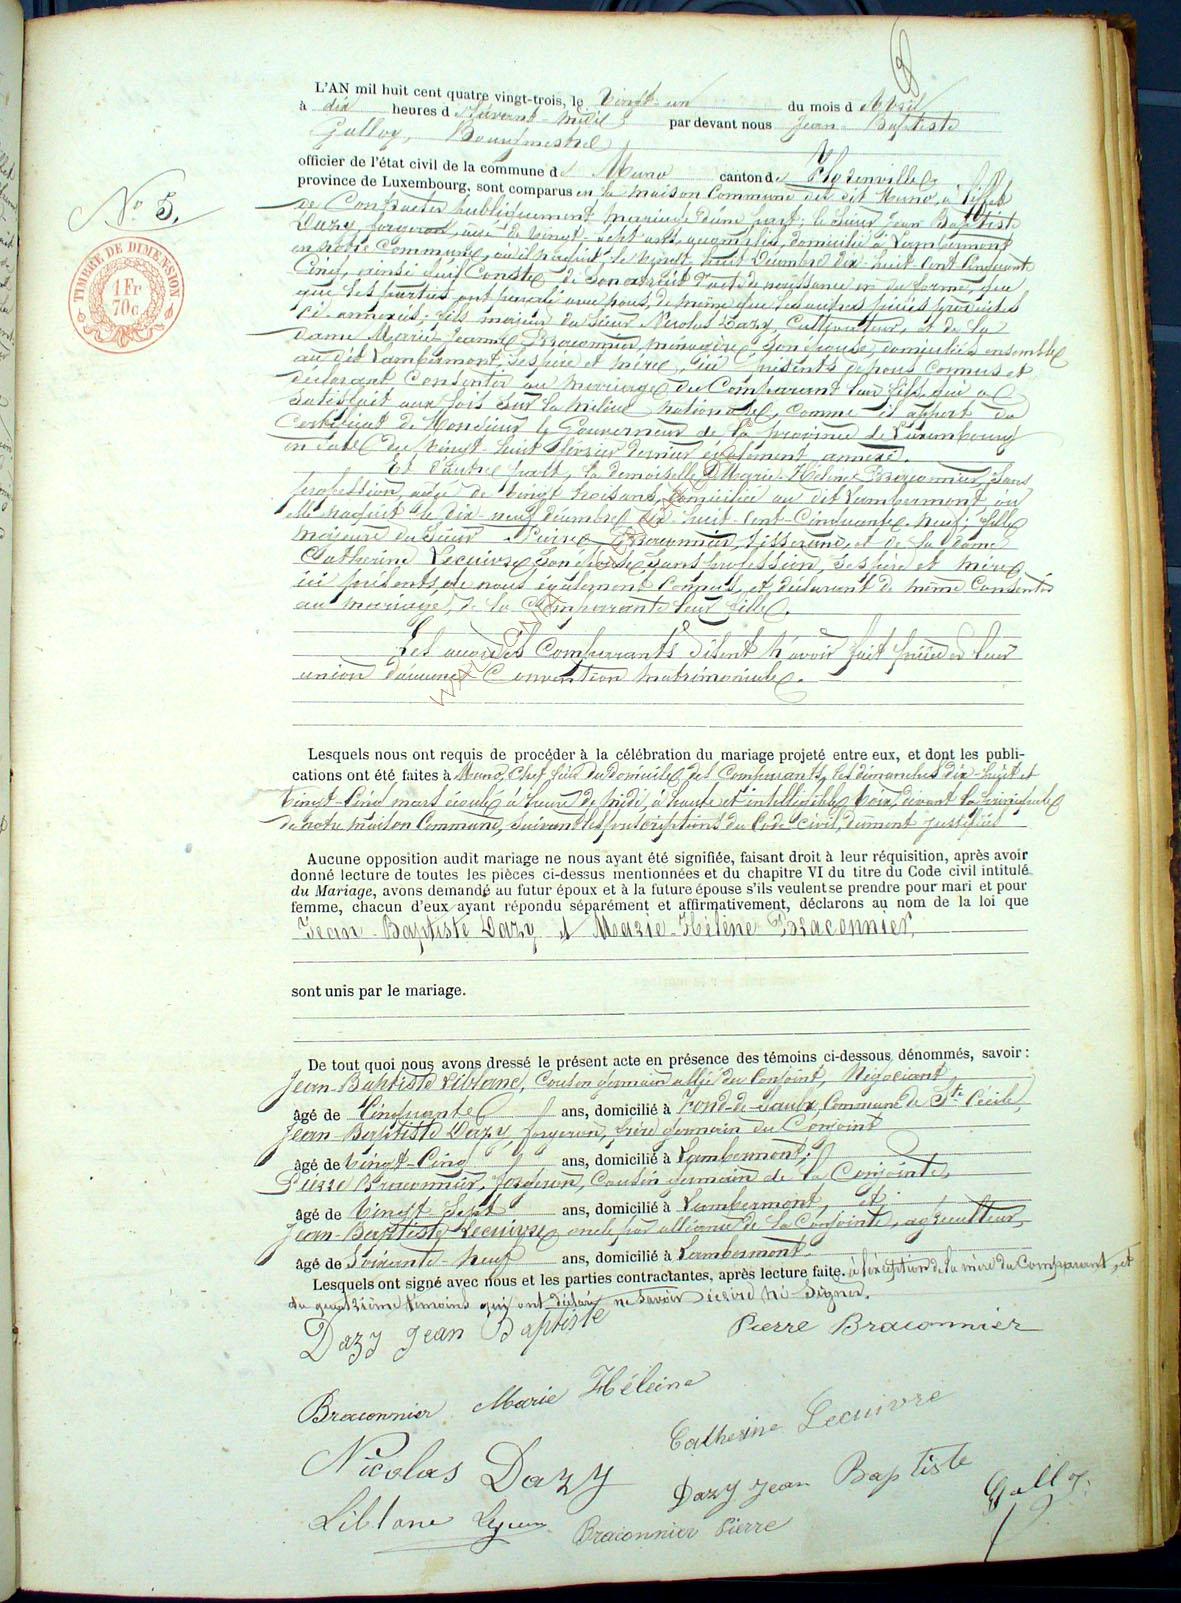 L'AN mil huit cent quatre vingt-trois, le vingt-un du mois d'Avril
à dix heures d'Avant-midi par devant nous Jean-Baptiste
Galloy, Bourgmestre
officier de l'état civil de la commune de Muno canton de Florenville
province de Luxembourg, sont comparus en la maison Commune du dit Muno, à l'effet
de Contracter publiquement mariage d'une part; le sieur Jean Baptiste
Dazy, forgeron, âgé de vingt-sept ans, domicilié à Lambermont
en notre Commune, où il naquit le vingt-huit Décembre dix-huit-Cent Cinquante
Cinq, ainsi qu'il Conste de son extrait d'acte de naissance en due forme,
que les parties ont paraphé avec nous, de même que les autres pièces produites
ci-annexées; fils majeur du sieur Nicolas Dazy, Cultivateur, et de la
dame Marie-Jeanne Braconnier, ménagère, son épouse, domiciliés ensemble
au dit Lambermont, ses père et mère, ici présents, de nous Connus et
déclarant Consentir au mariage du Comparant leur fils, qui a
satisfait aux lois sur la milice nationale, comme il appert du
Certificat de Monsieur le Gouverneur de la province de Luxembourg
en date du vingt-huit février dernier également annexé.
Et d'autre part, la demoiselle Marie-Hélène Braconnier, sans
profession, âgée de vingt trois ans, domiciliée au dit Lambermont, où
elle naquit le dix-neuf décembre dix-huit-Cent-Cinquante-neuf; fille
majeure du sieur Pierre Braconnier, tisserand, et de la dame
Catherine Lecuivre son épouse, sans profession, ses père et mère,
ici présents, de nous également Connus, et déclarant de même Consentir
au mariage de la Comparante leur fille.
Les Comparants disent n'avoir fait précéder leur
union d'aucune Convention matrimoniale.
Lesquels nous ont requis de procéder à la célébration du mariage projeté entre eux, et dont les publi-
cations ont été faites à Muno, Chef lieu du domicile des Comparants, les dimanches dix-huit et
vingt-Cinq mars écoulé à l'heure de midi, à haute et intelligible voix, devant la principale
de notre maison Commune, suivant les prescriptions du Code civil, dûment justifiées
Aucune opposition audit mariage ne nous ayant été signifiée, faisant droit à leur réquisition, après avoir
donné lecture de toutes les pièces ci-dessus mentionnées et du chapitre VI du titre du Code civil intitulé
du Mariage, avons demandé au futur époux et à la future épouse s'ils veulent se prendre pour mari et pour
femme, chacun d'eux ayant répondu séparément et affirmativement, déclarons au nom de la loi que
Jean-Baptiste Dazy et Marie-Hélène Braconnier,
sont unis par le mariage.
De tout quoi nous avons dressé le présent acte en présence des témoins ci-dessous dénommés, savoir :
Jean-Baptiste Liblanc, Cousin germain allié du Conjoint, Négociant,
âgé de Cinquante ans, domicilié à Fond-de-Laulx, Commune de Ste Cécile,
Jean-Baptiste Dazy, forgeron, frère germain du Conjoint
âgé de vingt-Cinq ans, domicilié à Lambermont,
Pierre Braconnier, forgeron, Cousin germain de la Conjointe,
âgé de vingt-Sept ans, domicilié à Lambermont, et
Jean-Baptiste Lecuivre, oncle par alliance de la Conjointe, agriculteur,
âgé de Soixante-neuf ans, domicilié à Lambermont.
Lesquels ont signé avec nous et les parties contractantes, après lecture faite. à l'exception de la mère du Comparant, et
du quatrième témoins qui ont déclaré ne savoir écrire ni signer.
Dazy Jean Baptiste
Pierre Braconnier
Braconnier Marie Hélène
Catherine Lecuivre
Nicolas Dazy
Dazy Jean Baptiste
Galloy
Liblanc
Braconnier Pierre
No 5.
TIMBRE DE DIMENSION
1 Fr
70 c.